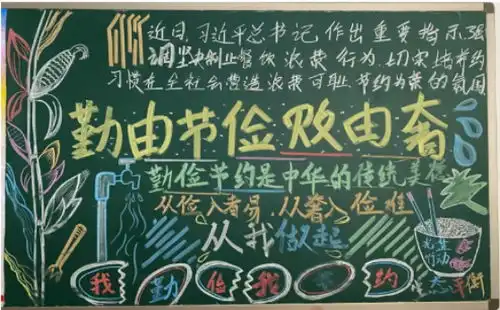 近日,习近平总书记作出重要指示强
调坚决制止餐饮浪费行为,切实培养节约
习惯在全社会营造浪费可耻节约为荣的氛围
勤由节俭败由奢
勤俭节约是中华的传统美德
从俭入奢易,从奢入俭难
从我做起
光盘
行动
我 勤 俭 我 节 约
态 平衡